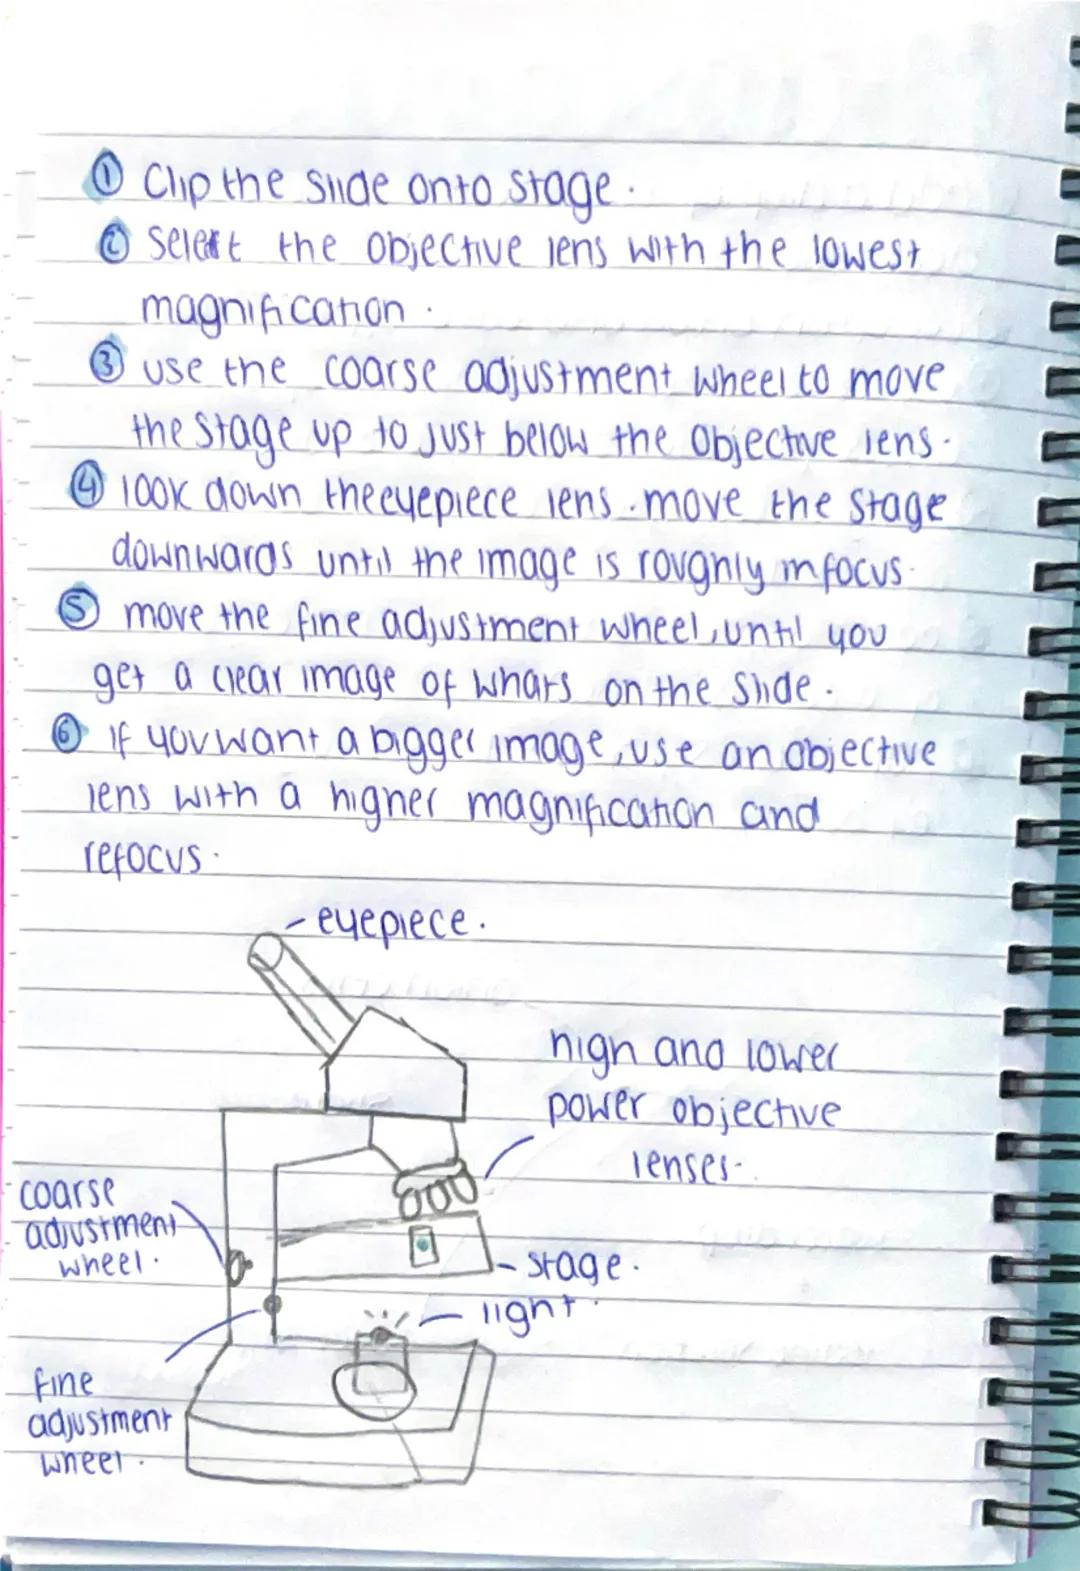 ① Clip the slide onto stage.
② Select the objective lens with the lowest
magnification.
③ use the coarse adjustment wheel to move
the stage up to just below the objective lens.
④ look down the eyepiece lens. move the stage
downwards until the image is roughly in focus.
⑤ move the fine adjustment wheel, until you
get a clear image of what's on the slide.
⑥ if you want a bigger image, use an objective
lens with a higher magnification and
refocus.
- eyepiece.
high and lower
power objective
lenses.
coarse
adjustment
wheel.
- stage.
light.
fine
adjustment
wheel.